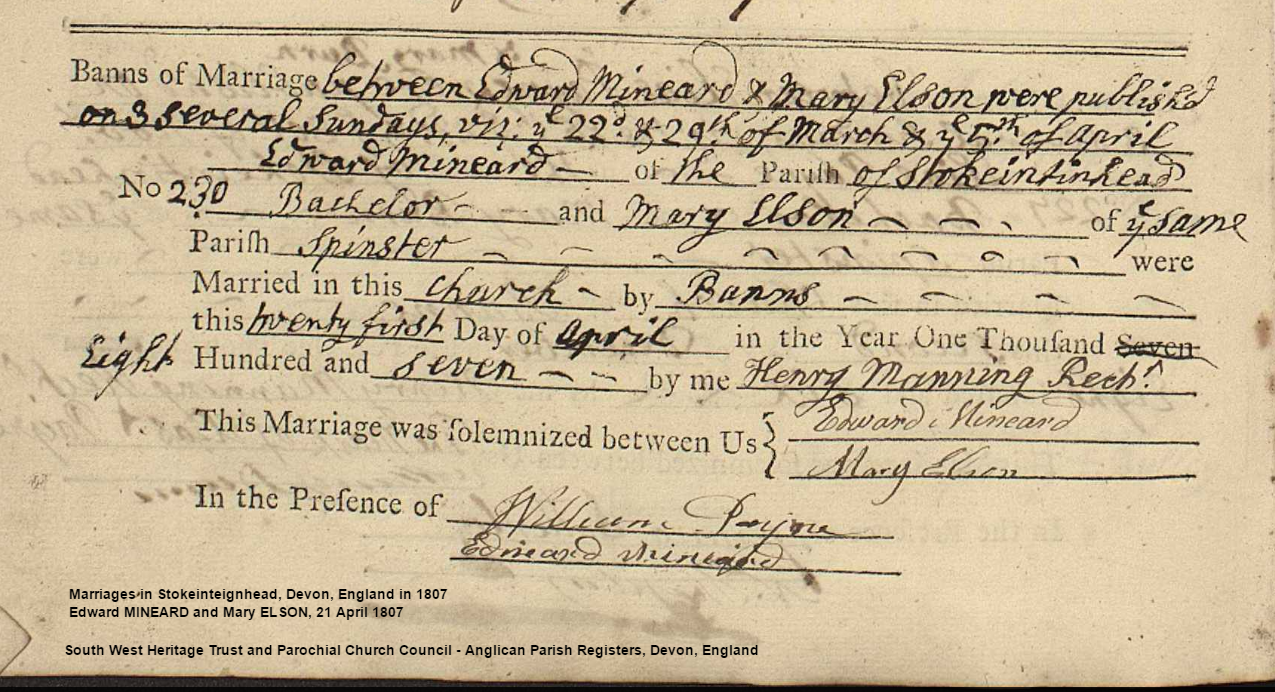 Banns of Marriage between Edward Mineard & Mary Elson were publish'd
on 3 several Sundays, viz: ye 22d. & 29th of March & ye 5th. of April
Edward Mineard of the Parish of Stokeintinhead
No 230 Bachelor and Mary Elson of ye same
Parish Spinster were
Married in this Church by Banns
this twenty first Day of April in the Year One Thousand Seven
Eight Hundred and seven by me Henry Manning Rectr.
This Marriage was solemnized between Us { Edward Mineard
Mary Elson
In the Presence of William Payne
Edward Mineard
Marriages in Stokeinteignhead, Devon, England in 1807
Edward MINEARD and Mary ELSON, 21 April 1807
South West Heritage Trust and Parochial Church Council - Anglican Parish Registers, Devon, England